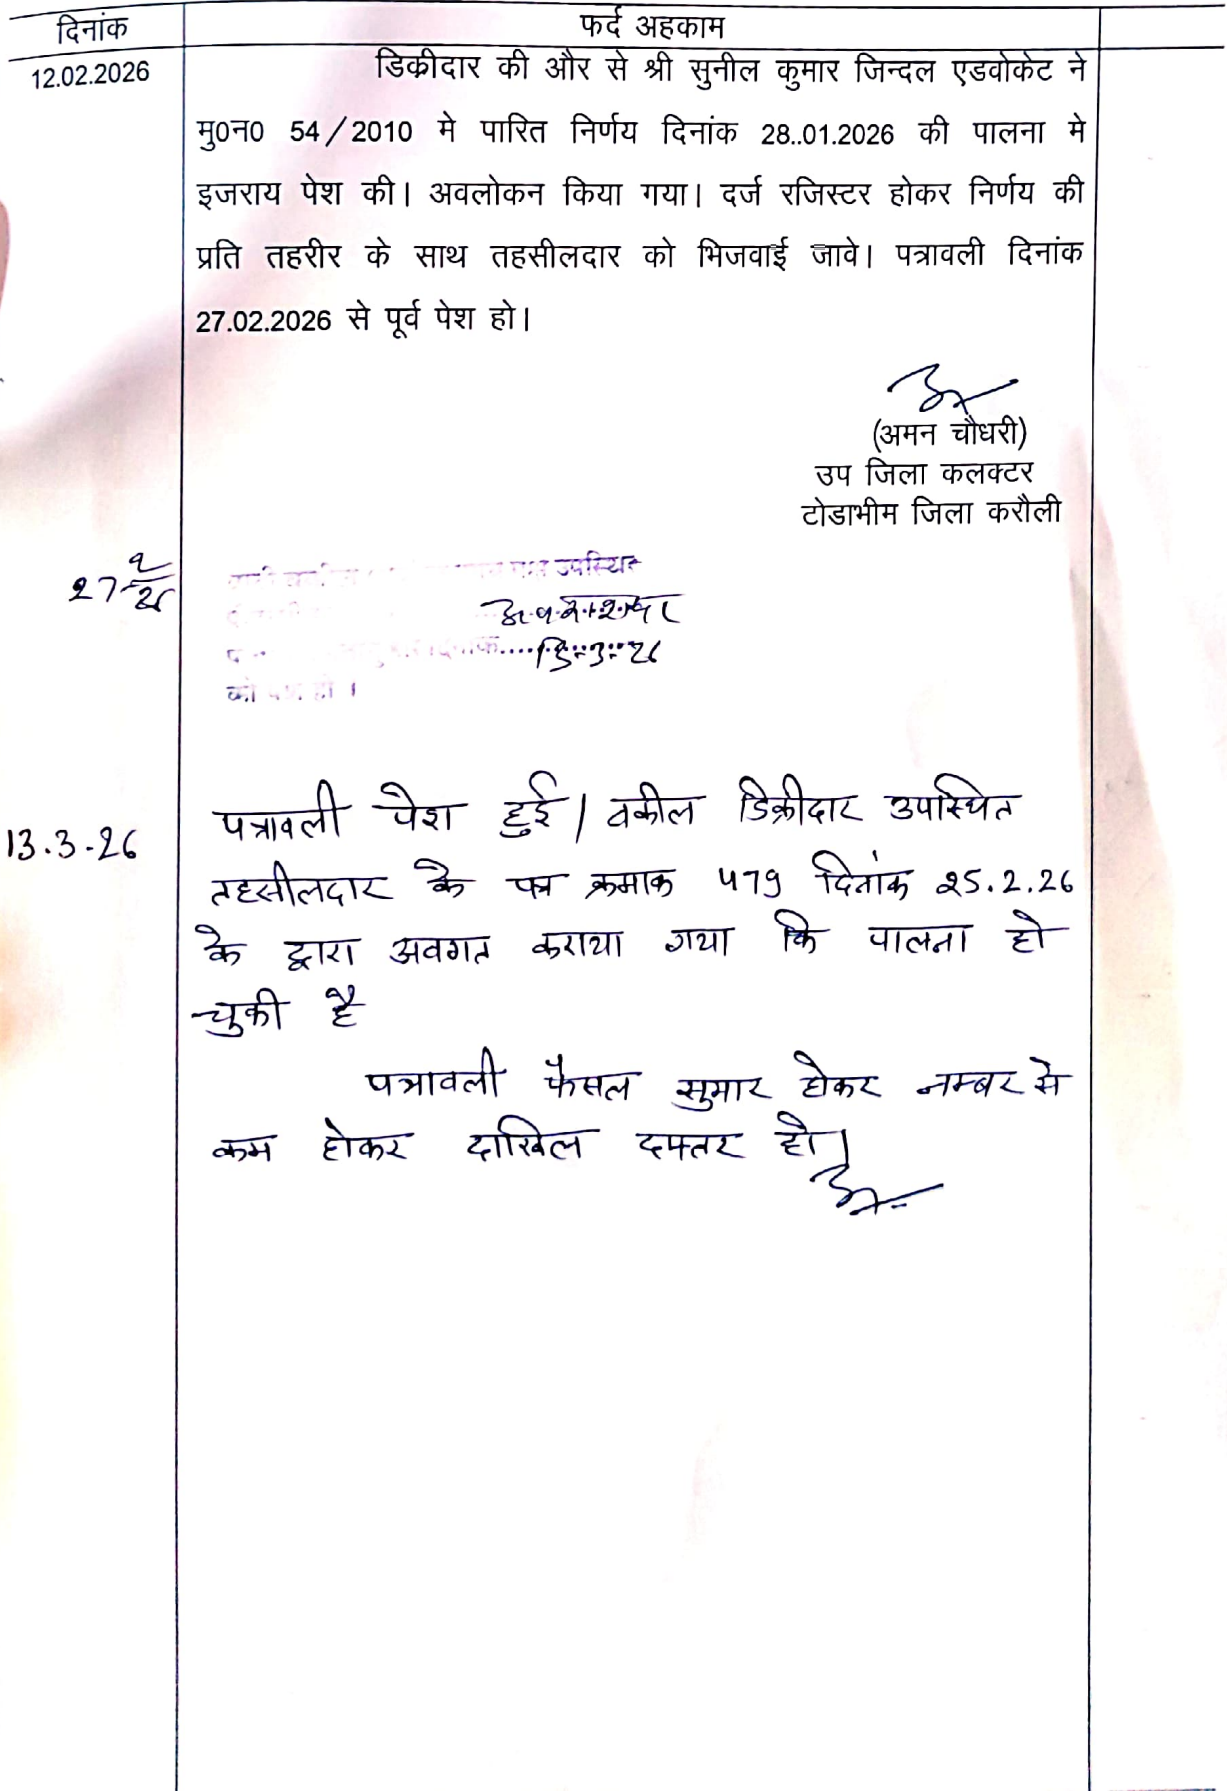 दिनांक
फर्द अहकाम
12.02.2026
डिक्रीदार की और से श्री सुनील कुमार जिन्दल एडवोकेट ने
मु0न0 54/2010 मे पारित निर्णय दिनांक 28..01.2026 की पालना मे
इजराय पेश की। अवलोकन किया गया। दर्ज रजिस्टर होकर निर्णय की
प्रति तहरीर के साथ तहसीलदार को भिजवाई जावे। पत्रावली दिनांक
27.02.2026 से पूर्व पेश हो।
(अमन चौधरी)
उप जिला कलक्टर
टोडाभीम जिला करौली
उपस्थित
को पेश हो ।
13.3.26
पत्रावली पेश हुई। वकील डिक्रीदार उपस्थित
तहसीलदार के पत्र क्रमाक 479 दिनांक 25.2.26
के द्वारा अवगत कराया गया कि पालना हो
चुकी है
पत्रावली फैसल सुमार होकर नम्बर से
कम होकर दाखिल दफ्तर हो।